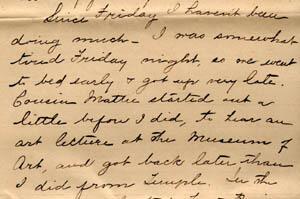 Since Friday I haven't been
doing much – I was somewhat
tired Friday night, so we went
to bed early & got up very late.
Cousin Mattie started out a
little before I did, to hear an
art lecture at the Museum of
Art, and got back later than
I did from Temple. In the